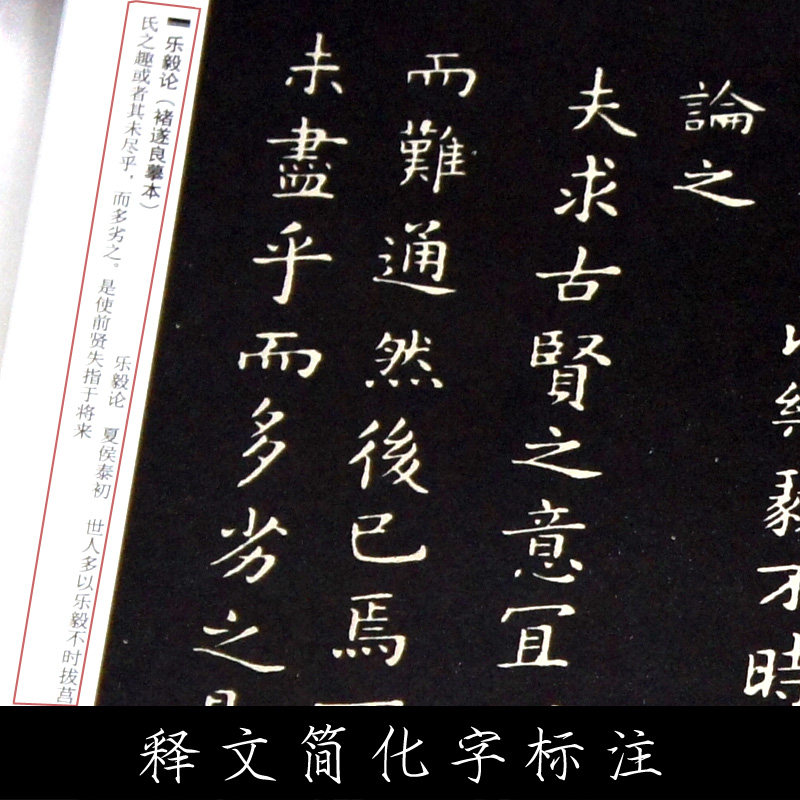 毅不時
論之
夫求古賢之意宜
而難通然後已焉
未盡乎而多劣之
乐毅论（褚遂良摹本） 乐毅论 夏侯泰初 世人多以乐毅不时拔莒
氏之趣或者其未尽乎，而多劣之。是使前贤失指于将来
释文简化字标注